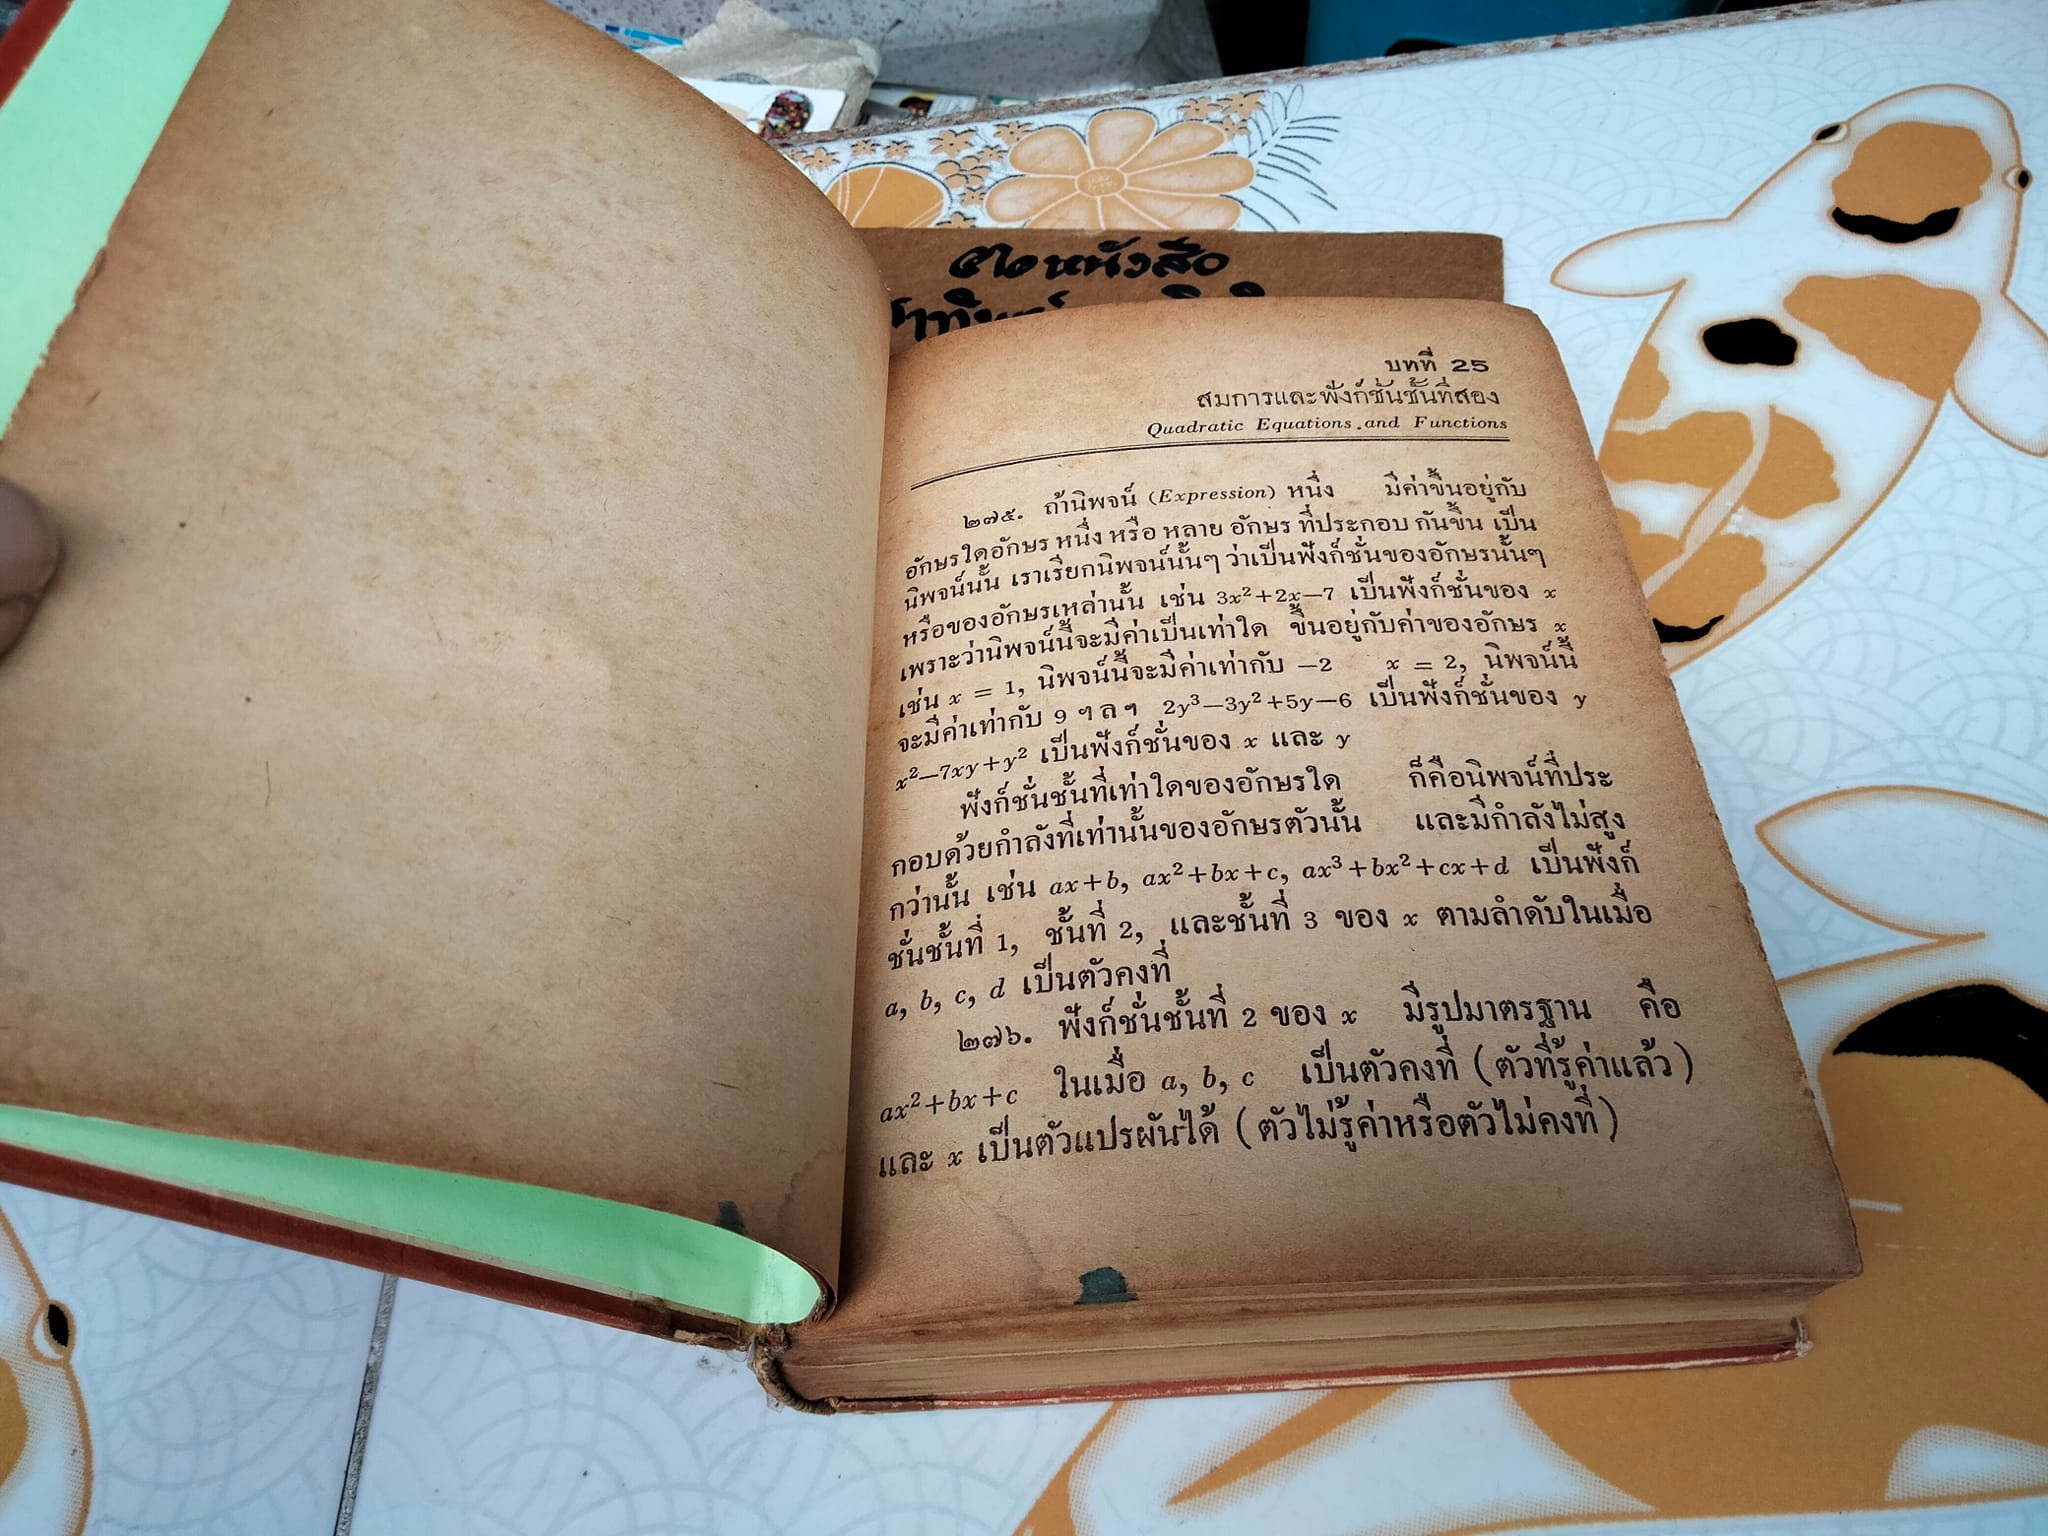 บทที่ 25
สมการและฟังก์ชั่นชั้นที่สอง
Quadratic Equations and Functions
๒๗๕. ถ้านิพจน์ (Expression) หนึ่ง มีค่าขึ้นอยู่กับ
อักษรใดอักษร หนึ่ง หรือ หลาย อักษร ที่ประกอบ กันขึ้น เป็น
นิพจน์นั้น เราเรียกนิพจน์นั้นๆ ว่าเป็นฟังก์ชั่นของอักษรนั้นๆ
หรือของอักษรเหล่านั้น เช่น 3x²+2x—7 เป็นฟังก์ชั่นของ x
เพราะว่านิพจน์นี้จะมีค่าเป็นเท่าใด ขึ้นอยู่กับค่าของอักษร x
เช่น x = 1, นิพจน์นี้จะมีค่าเท่ากับ —2 x = 2, นิพจน์นี้
จะมีค่าเท่ากับ 9 ฯ ล ฯ 2y³—3y²+5y—6 เป็นฟังก์ชั่นของ y
x²—7xy+y² เป็นฟังก์ชั่นของ x และ y
ฟังก์ชั่นชั้นที่เท่าใดของอักษรใด ก็คือนิพจน์ที่ประ
กอบด้วยกำลังที่เท่านั้นของอักษรตัวนั้น และมีกำลังไม่สูง
กว่านั้น เช่น ax+b, ax²+bx+c, ax³+bx²+cx+d เป็นฟังก์
ชั่นชั้นที่ 1, ชั้นที่ 2, และชั้นที่ 3 ของ x ตามลำดับในเมื่อ
a, b, c, d เป็นตัวคงที่
๒๗๖. ฟังก์ชั่นชั้นที่ 2 ของ x มีรูปมาตรฐาน คือ
ax²+bx+c ในเมื่อ a, b, c เป็นตัวคงที่ (ตัวที่รู้ค่าแล้ว)
และ x เป็นตัวแปรผันได้ (ตัวไม่รู้ค่าหรือตัวไม่คงที่)